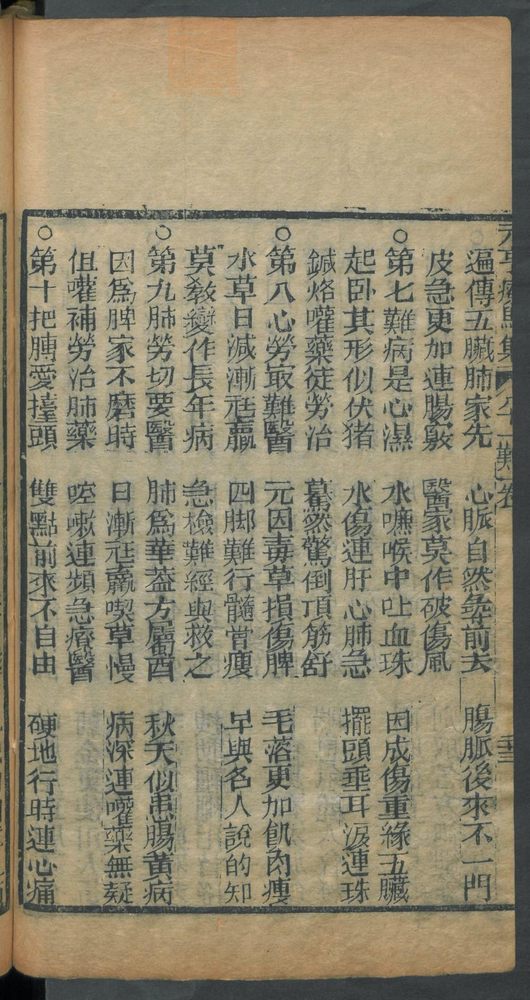 元亨療馬集 八十一難卷 三十三
遍傳五臟肺家先 心脈自然 前去 腸脈後來不一門
皮急更加連腸竅 醫家莫作破傷風
○第七難病是心濕 水嚥喉中吐血珠 因成傷重緣五臟
起卧其形似伏猪 水傷連肝心肺急 擺頭垂耳淚連珠
鍼烙嚾藥徒勞治 驀然驚倒頂筋舒
○第八心勞㝡難醫 元因毒草損傷脾 毛落更加飢肉瘦
水草日減漸尫羸 四脚難行髓曾瘦 早與名人說的知
莫教變作長年病 急檢難經與救之
○第九肺勞切要醫 肺爲華葢方屬酉 秋天似患腸黃病
因爲脾家不磨時 日漸尫羸喫草慢 病深連嚾藥無疑
但嚾補勞治肺藥 啌嗽連頻急療醫
○第十把膊愛擡頭 雙點前來不自由 硬地行時連心痛